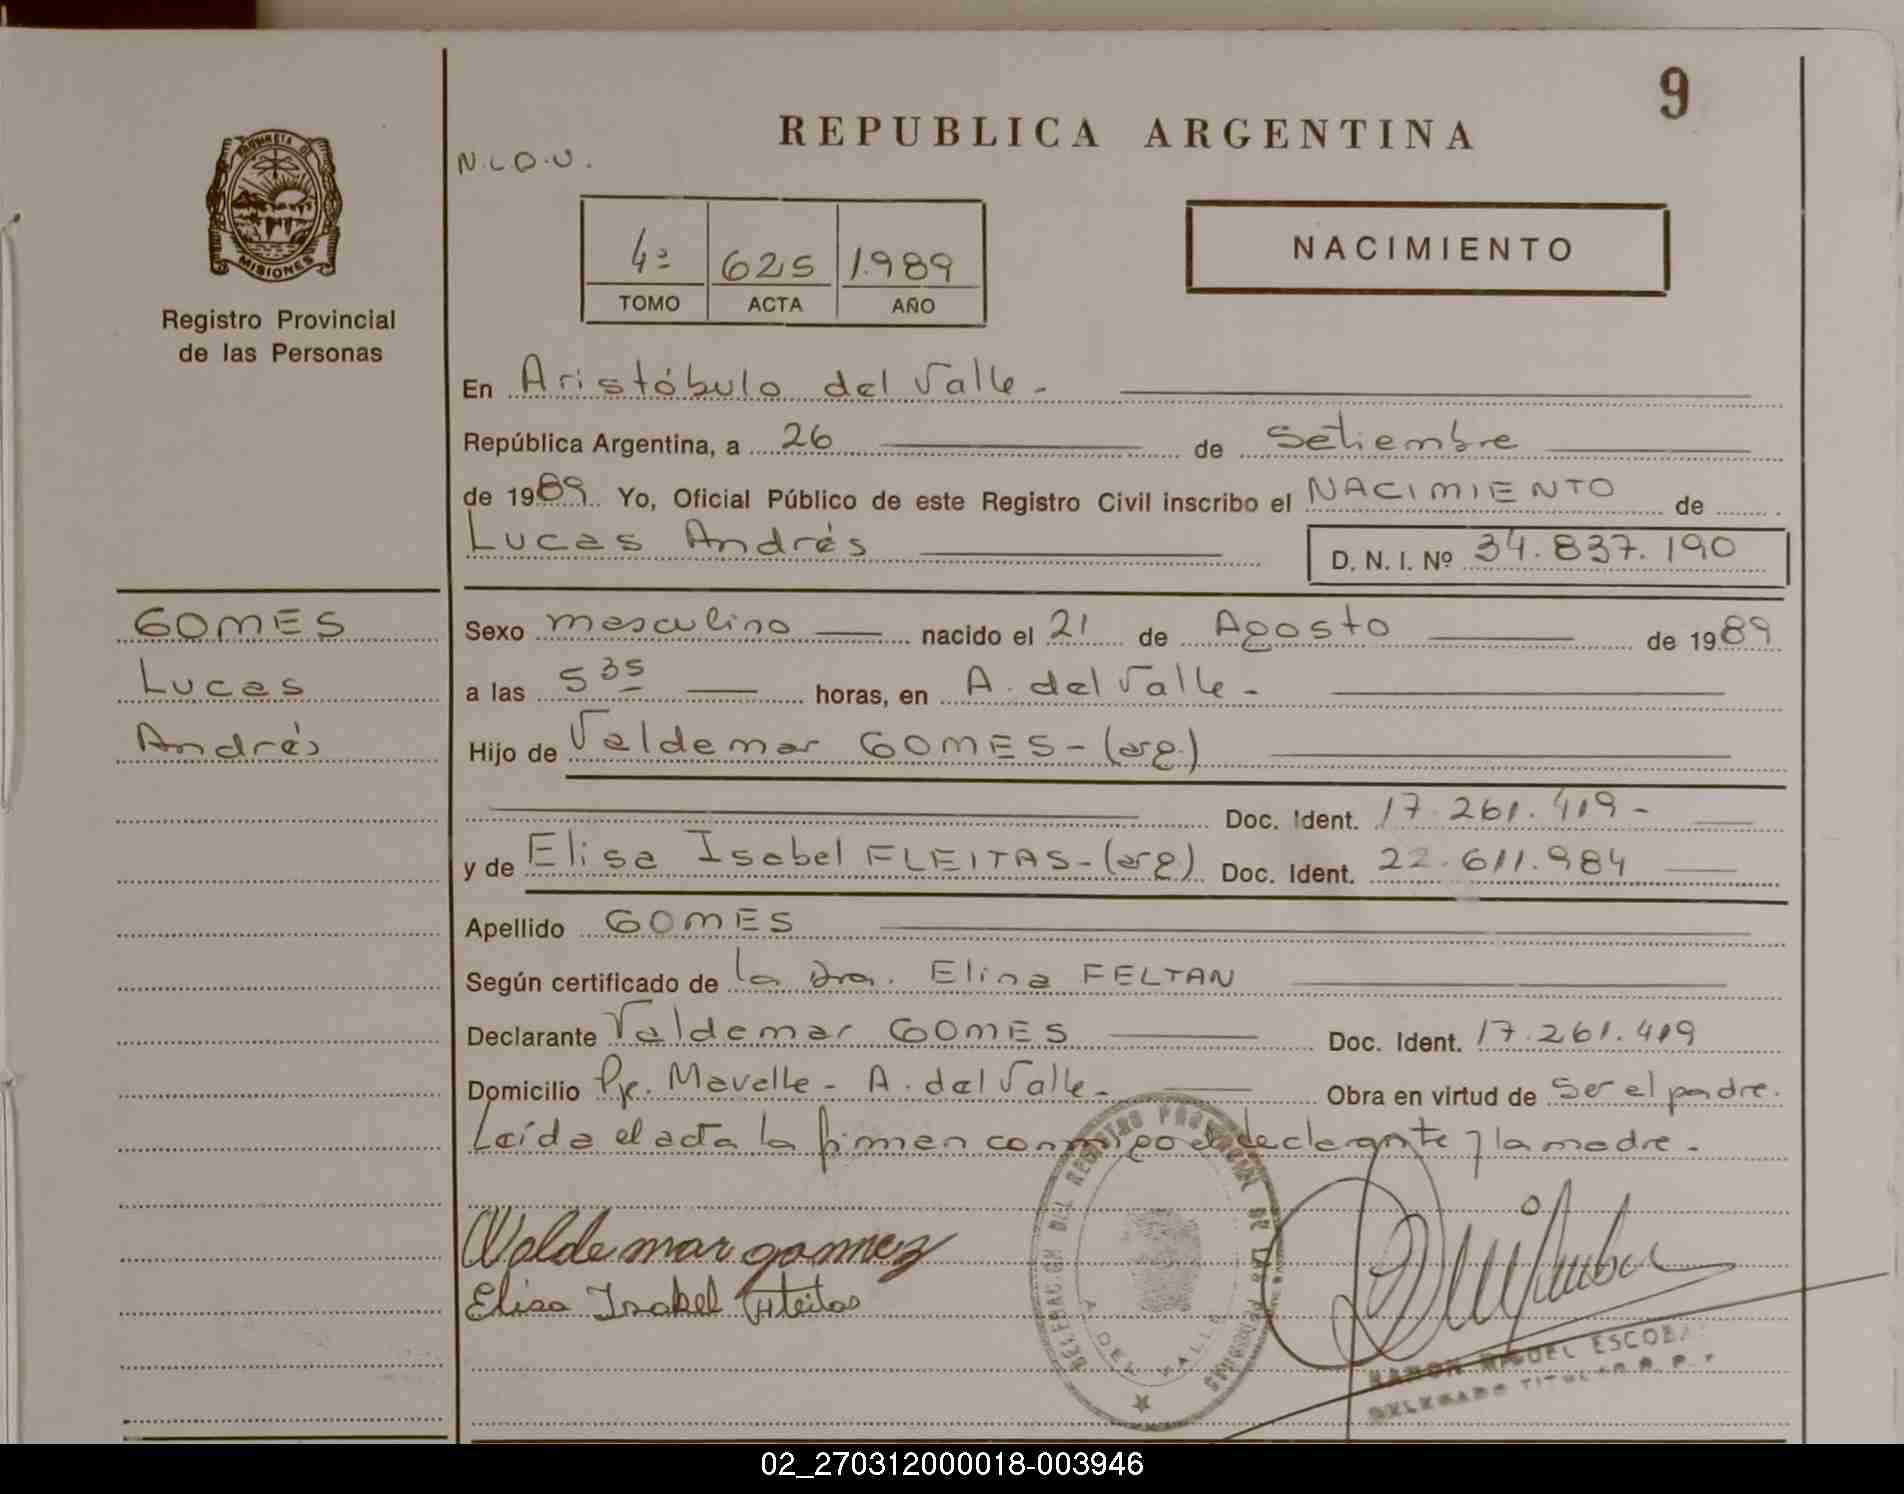 9
REPUBLICA ARGENTINA
N.L.O.U.
PROVINCIA DE
MISIONES
Registro Provincial
de las Personas
4º 625 1.989
TOMO ACTA AÑO
NACIMIENTO
En Aristóbulo del Valle -
República Argentina, a 26 de Setiembre
de 1989 Yo, Oficial Público de este Registro Civil inscribo el NACIMIENTO de
Lucas Andrés D. N. I. Nº 34.837.190
GOMES
Lucas
Andrés
Sexo masculino nacido el 21 de Agosto de 1989
a las 5 35 horas, en A. del Valle -
Hijo de Valdemar GOMES - (arg.)
Doc. Ident. 17.261.419 -
y de Elisa Isabel FLEITAS - (arg) Doc. Ident. 22.611.984
Apellido GOMES
Según certificado de la Dra. Elina FELTAN
Declarante Valdemar GOMES Doc. Ident. 17.261.419
Domicilio Pje. Mavalle - A. del Valle - Obra en virtud de ser el padre.
Leída el acta la firman conmigo el declarante y la madre -
Waldemar gomez
Elisa Isabel Fleitas
DELEGACION DEL REGISTRO PROVINCIAL DE LAS PERSONAS
A. DEL VALLE
RAMON MIGUEL ESCOBAR
DELEGADO TITULAR R. P.
02_270312000018-003946